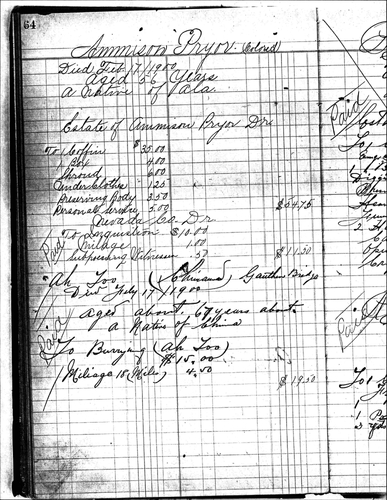 64
Ammison Pryor (Colored)
Died Feb 17/1900
aged 56 Years
a Native of Ala.
Estate of Ammison Pryor Dr.
To Coffin $35.00
1 Box 4.00
Shroud 6.00
Underclothes 1.25
Preserving Body 3.50
Personal Service 5.00 $54.75
Nevada Co. Dr
Paid
To Inquisition $10.00
Mileage 1.00
Subpoening Witnesses .50 $11.50
Ah Too (Chinaman) Gaulthie Bridge
Died July 17/1900
aged about 67 years about
a Native of China
Paid
To Burrying (Ah Too)
$15.00
Mileage 18 (Miles) 4.50 $19.50
Paid
Paid